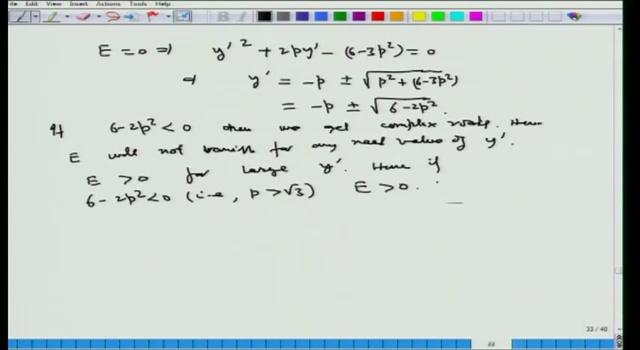 File Edit View Insert Actions Tools Help
E = 0 ⇒ y'² + 2py' − (6−3p²) = 0
⇒ y' = −p ± √p² + (6−3p²)
= −p ± √6−2p²
If 6−2p² < 0 then we get complex roots. Hence
E will not vanish for any real value of y'.
E > 0 for large y'. Hence if
6−2p² < 0 (i.e., p > √3) E > 0.
33 / 40
33